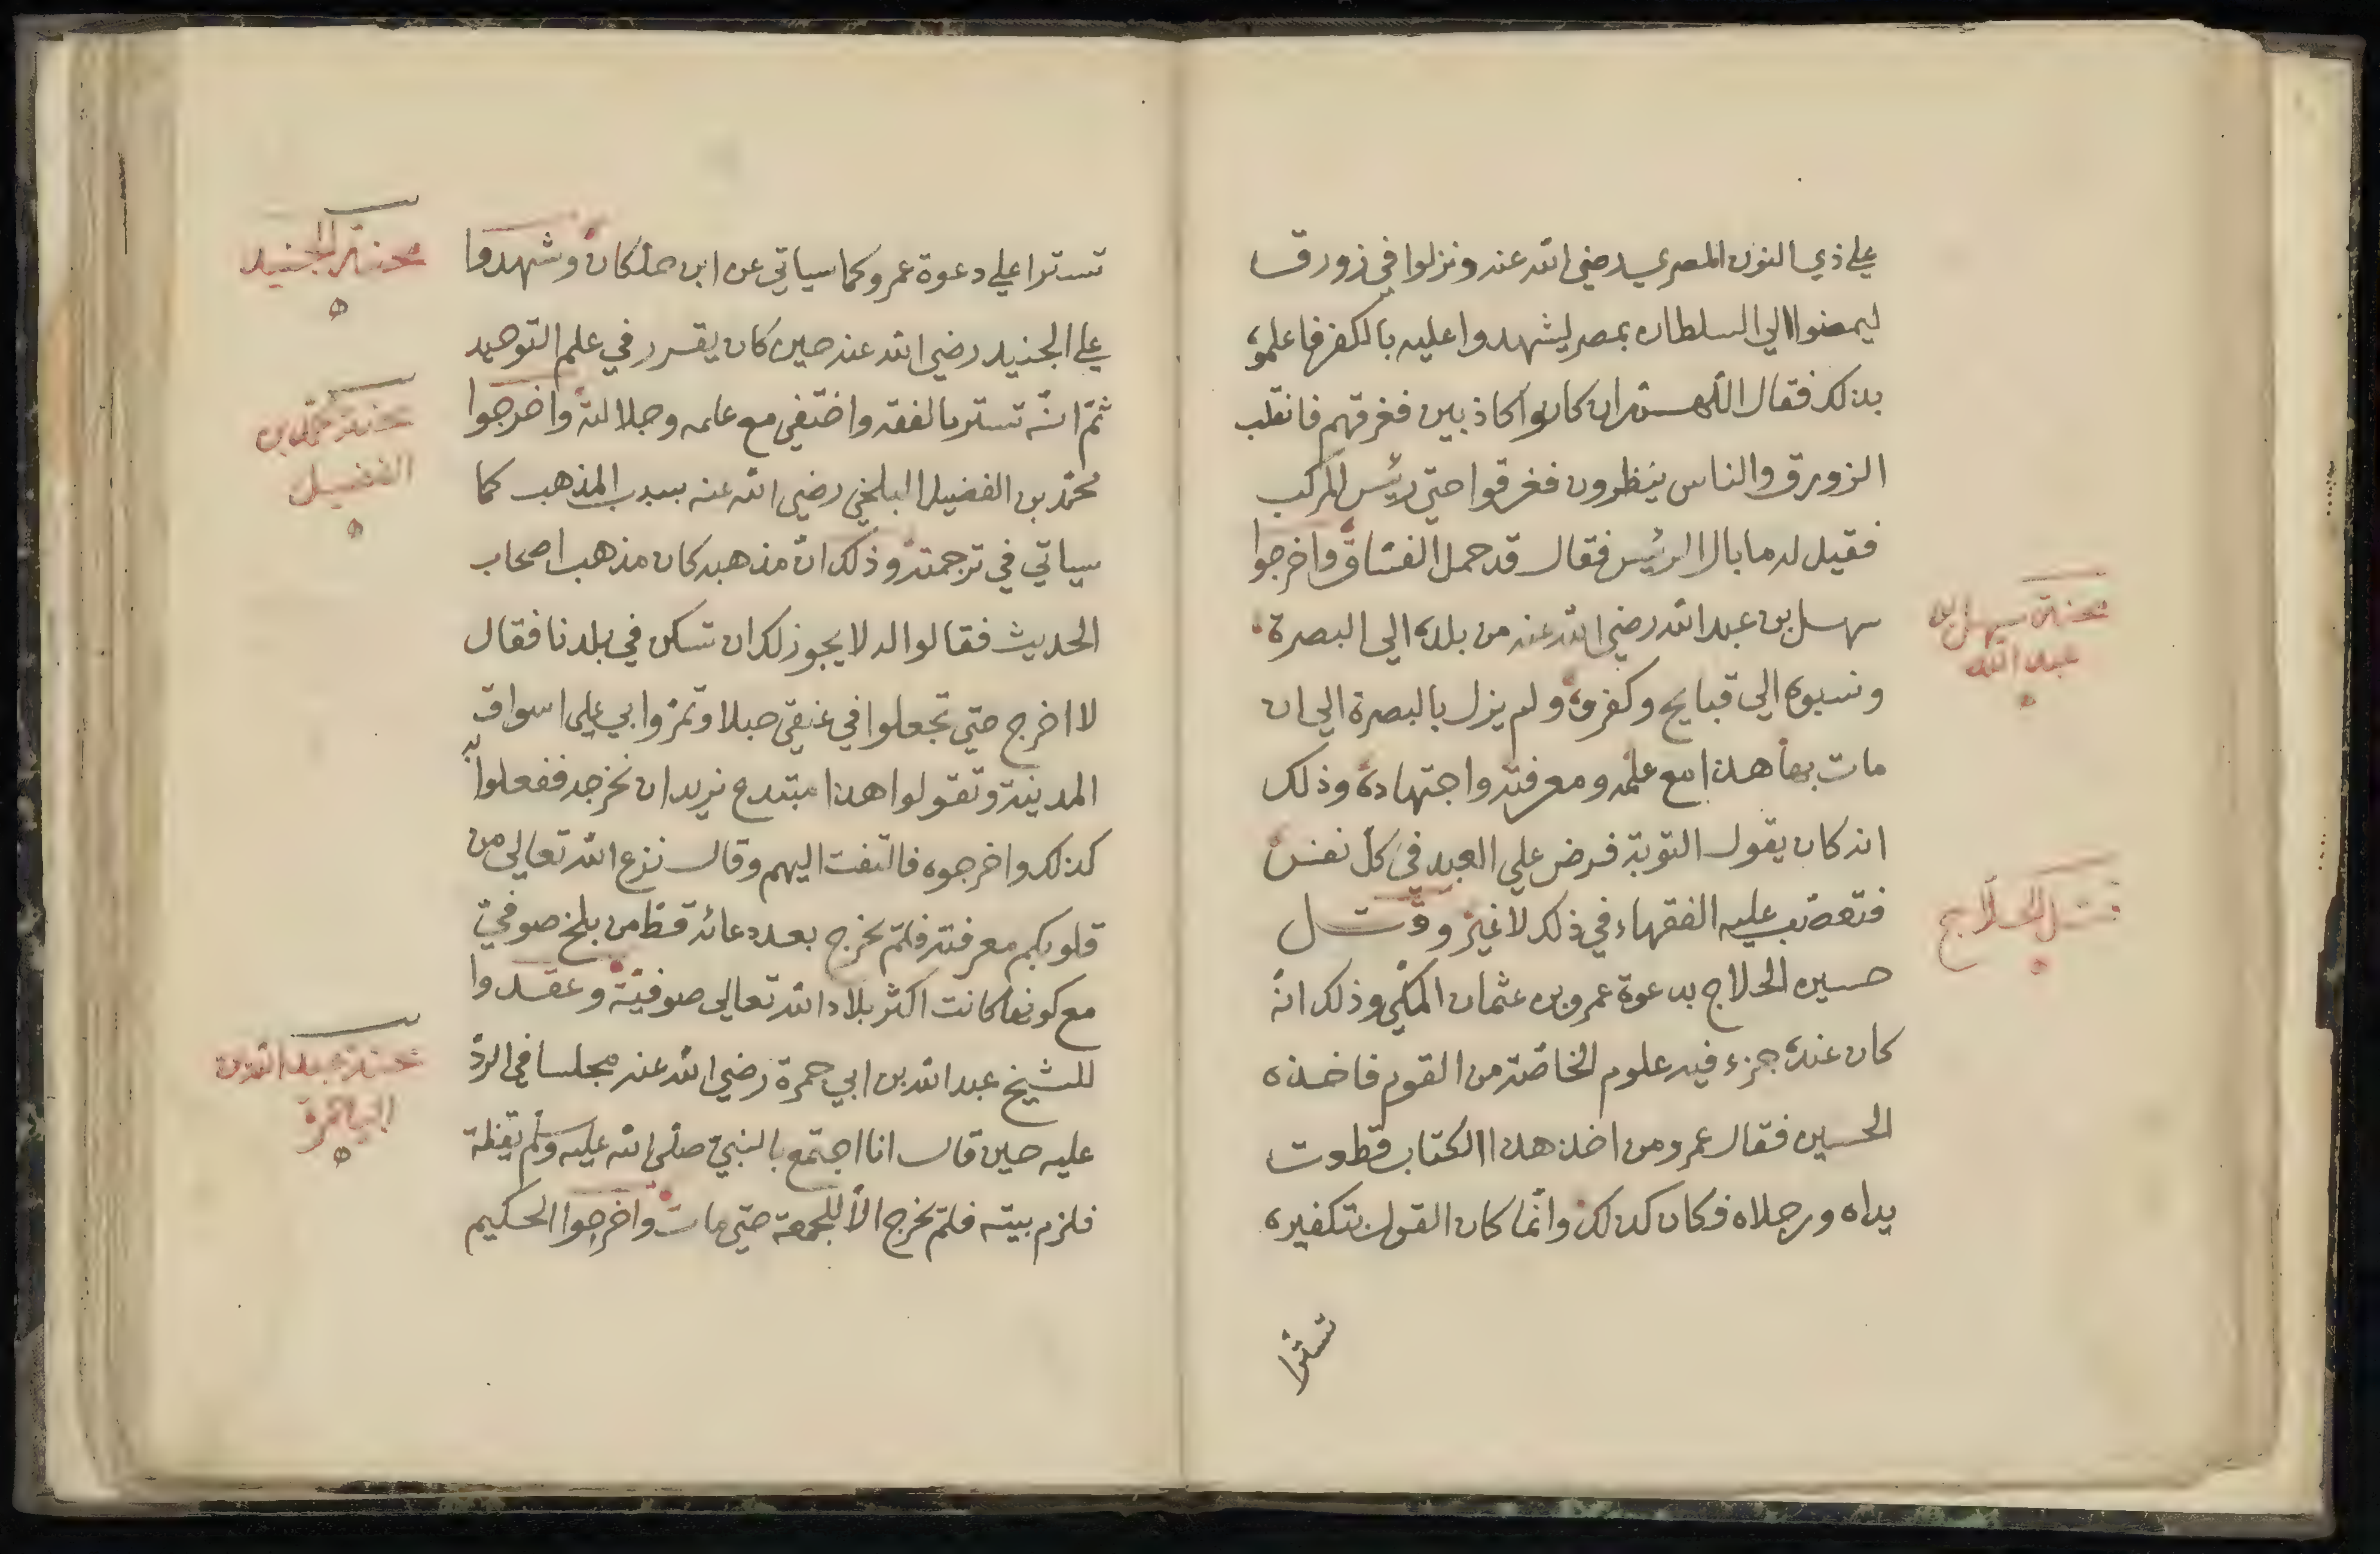 علي ذي النون المصري رضي الله عنه ونزلوا في زورق
ليمضوا الي السلطان بمصر ليشهدوا عليه بالكفر فاعلموه
بذلك فقال اللهم ان كانوا كاذبين فغرقهم فانقلب
الزورق والناس ينظرون فغرقوا حتي رئيس المركب
فقيل له ما بال الرئيس فقال قد حمل الفساق واخرجوا
سهل بن عبد الله رضي الله عنه من بلده الي البصرة
ونسبوه الي قبايح وكفروه ولم يزل بالبصرة الي ان
مات بها هذا مع علمه ومعرفته واجتهاده وذلك
انه كان يقول التوبة فرض علي العبد في كل نفس
فتعصب عليه الفقهاء في ذلك لا غير وقتل
حسين الحلاج بدعوة عمرو بن عثمان المكي وذلك انه
كان عنده جزء فيه علوم الخاصة من القوم فاخذه
الحسين فقال عمرو من اخذ هذا الكتاب قطعت
يداه ورجلاه فكان كذلك وانما كان القول بتكفيره
تسترا
محنة سهل بن
عبد الله
قتل الحلاج
تسترا علي دعوة عمرو كما سياتي عن ابن خلكان وشهدوا
علي الجنيد رضي الله عنه حين كان يقرر في علم التوحيد
ثم انه تستر بالفقه واختفي مع علمه وجلالته واخرجوا
محمد بن الفضيل البلخي رضي الله عنه بسبب المذهب كما
سياتي في ترجمته وذلك ان مذهبه كان مذهب اصحاب
الحديث فقالوا له لا يجوز لك ان تسكن في بلدنا فقال
لا اخرج حتي تجعلوا في عنقي حبلا وتمروا بي علي اسواق
المدينة وتقولوا هذا مبتدع نريد ان نخرجه ففعلوا به
كذلك واخرجوه فالتفت اليهم وقال نزع الله تعالي من
قلوبكم معرفته فلم يخرج بعد دعائه قط من بلخ صوفي
مع كونها كانت اكثر بلاد الله تعالي صوفية وعقدوا
للشيخ عبد الله بن ابي حمرة رضي الله عنه مجلسا في الرد
عليه حين قال انا اجتمع بالنبي صلي الله عليه وسلم يقظة
فلزم بيته فلم يخرج الا للجمعة حتي مات واخرجوا الحكيم
محنة الجنيد
محنة محمد بن
الفضيل
محنة عبد الله بن
ابي حمرة